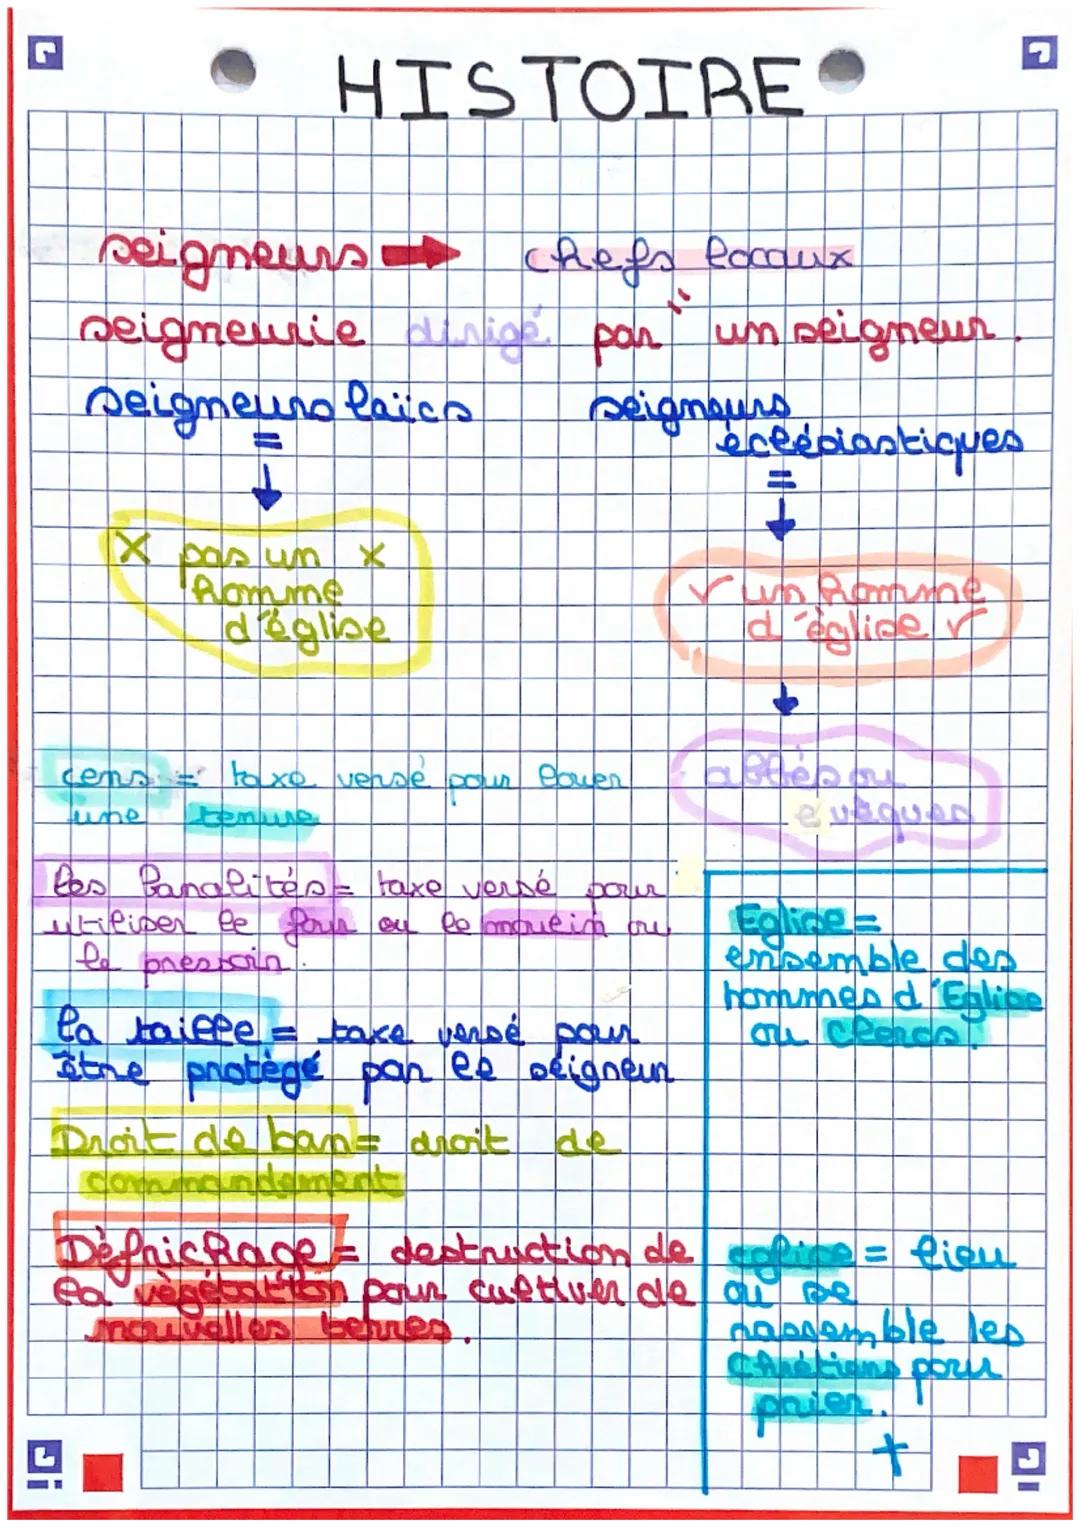 HISTOIRE
seigneurs → chefs locaux
seigneurie dirigé par un seigneur.
seigneurs laïcs
=
↓
X pas un X
homme
d'église
seigneurs
écclésiastiques
=
↓
✓ un homme
d'église ✓
↓
abbés ou
evêques
cens = taxe versé pour louer
une tenure
les banalités = taxe versé pour
utiliser le four ou le moulin ou
le pressoir.
la taille = taxe versé pour
être protègé par le seigneur
Droit de ban = droit de
commandement
Dèfrichage = destruction de
la végétation pour cultiver de
nouvelles terres.
Eglise =
ensemble des
hommes d'Eglise
ou clercs.
eglise = lieu
ou se
rassemble les
Chrétiens pour
prier.